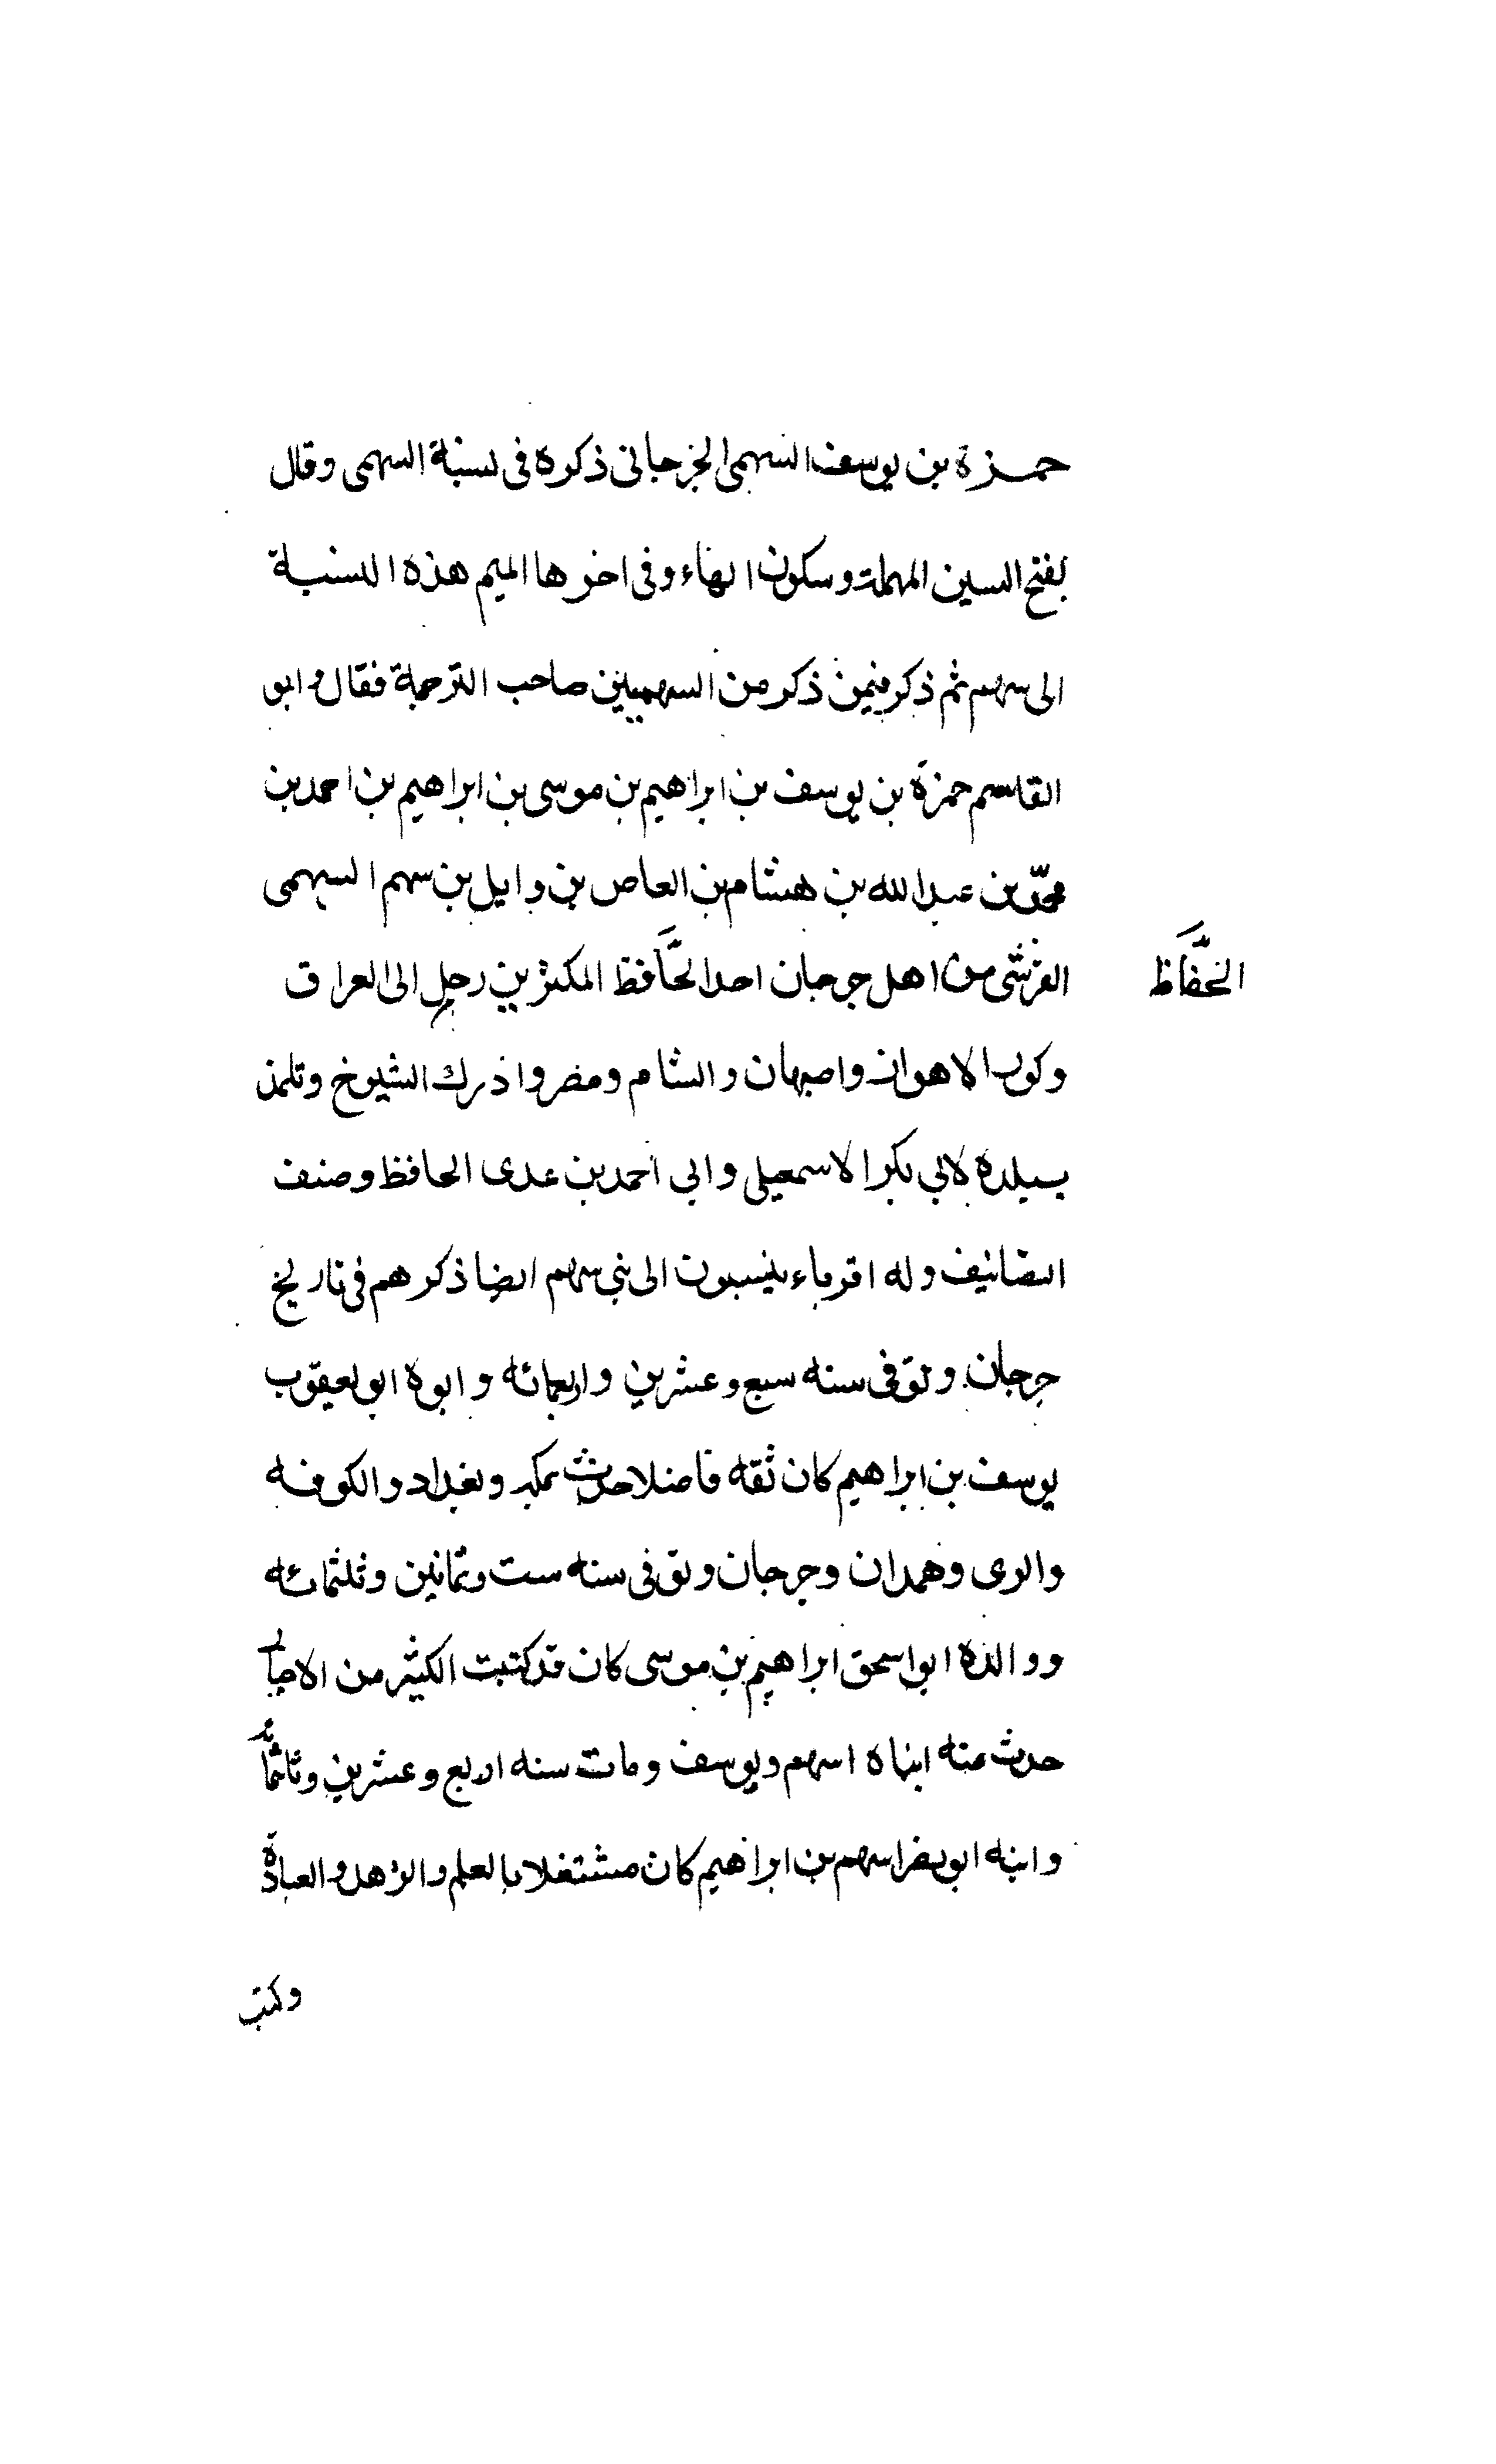 حمزة بن يوسف السهمى الجرجانى ذكره فى نسبة السهمى وقال
بفتح السين المهملة وسكون الهاء وفى اخرها الميم هذه النسبة
الى سهم ثم ذكر فيمن ذكر من السهميين صاحب الترجمة فقال وابو
القاسم حمزة بن يوسف بن ابراهيم بن موسى بن ابراهيم بن احمد بن
محمد بن عبد الله بن هشام بن العاص بن وايل بن سهم السهمى
القرشى من اهل جرجان احد الحافظ المكثرين رحل الى العراق
الحفاظ
وكور الاهواز واصبهان والشام ومصر واذرك الشيوخ وتلمذ
ببلده لابي بكر الاسمعيلي وابي احمد بن عدى الحافظ وصنف
التصانيف وله اقرباء ينسبون الى بني سهم ايضا ذكرهم فى تاريخ
جرجان وتوفى سنه سبع وعشرين واربعمائه وابوه ابو يعقوب
يوسف بن ابراهيم كان ثقه فاضلا حدث بمكه وبغداد والكوفه
والرى وهمدان وجرجان وتوفى سنه ست وثمانين وثلثمائه
ووالده ابو اسحق ابراهيم بن موسى كان قد كتبت الكثير من
حدث عنه ابناه اسهم ويوسف ومات سنه اربع وعشرين وثلثمائه
وابنه ابو نصر اسهم بن ابراهيم كان مشتغلا بالعلم والزهد والعبادة
وكتب